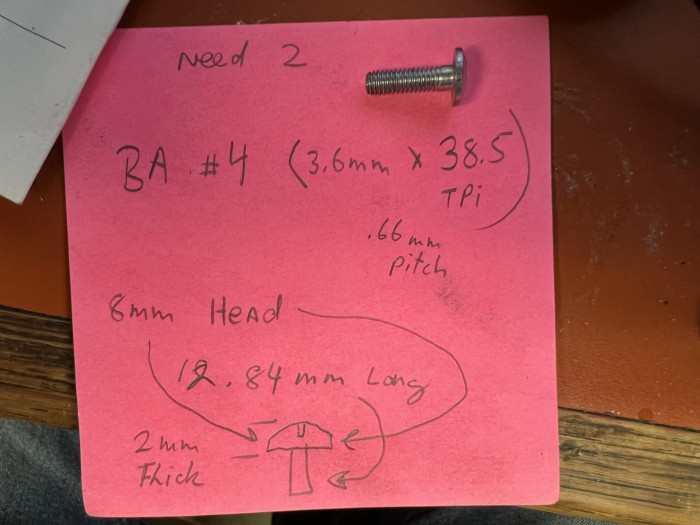 Need 2
BA #4 (3.6mm x 38.5
TPi
.66mm
Pitch
8mm Head
12.84mm Long
2mm
Thick